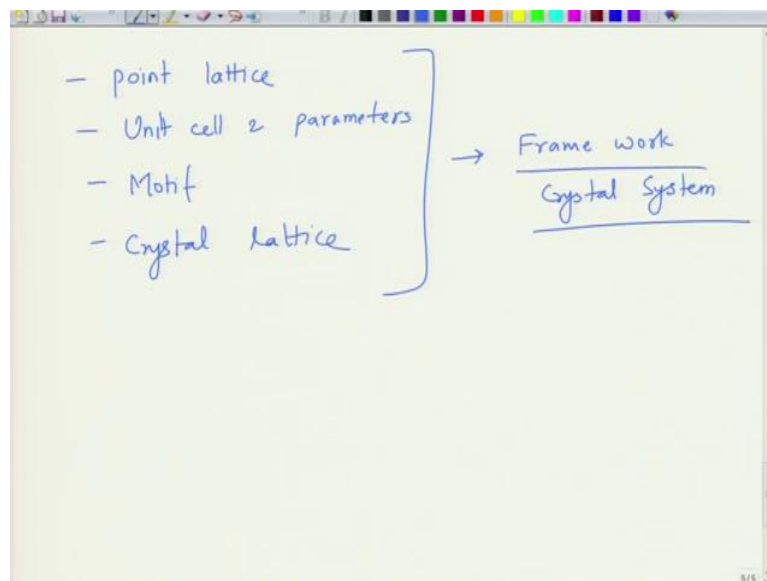 - point lattice
- Unit cell 2 parameters
- Motif
- Crystal lattice
→ Frame work
Crystal System
5/5